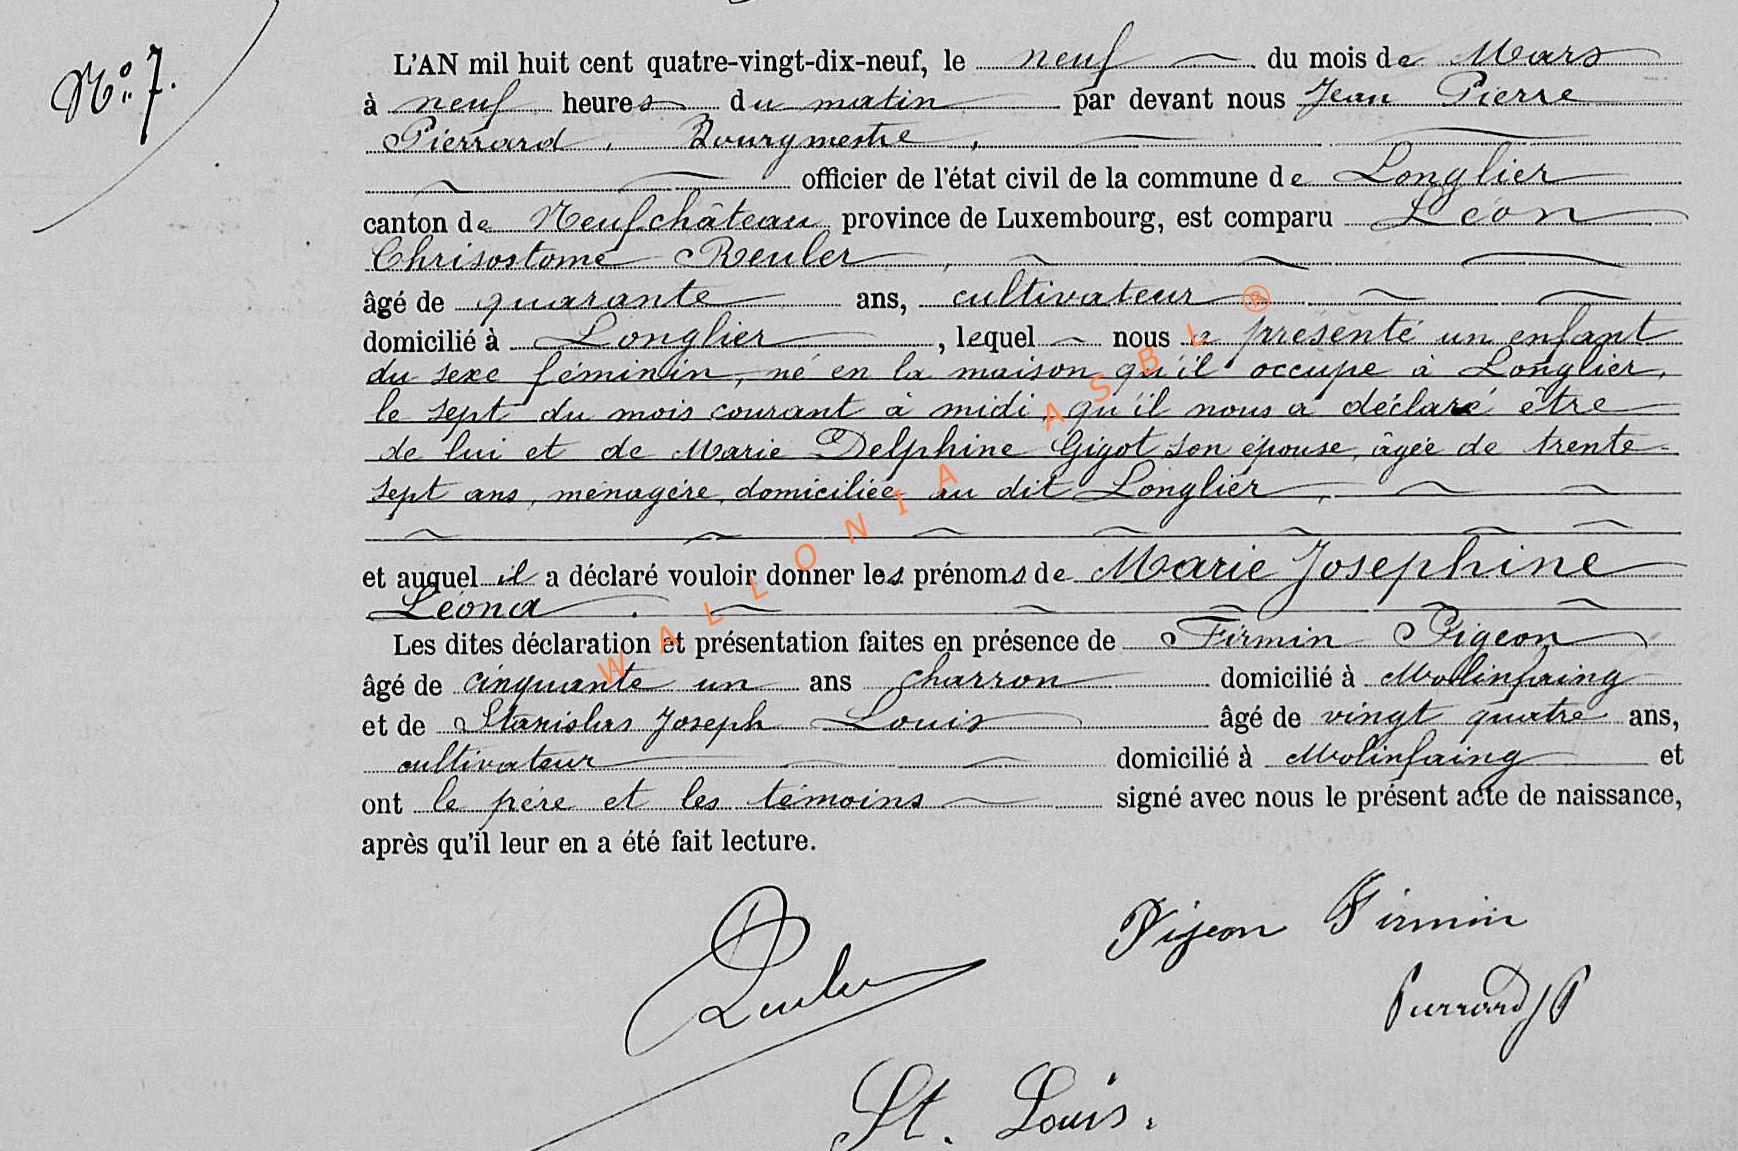 No. 7.
L'AN mil huit cent quatre-vingt-dix-neuf, le neuf du mois de Mars
à neuf heures du matin par devant nous Jean Pierre
Pierrard, Bourgmestre,
officier de l'état civil de la commune de Longlier
canton de Neufchâteau province de Luxembourg, est comparu Léon
Chrisostome Reuler,
âgé de quarante ans, cultivateur
domicilié à Longlier, lequel nous a présenté un enfant
du sexe féminin, né en la maison qu'il occupe à Longlier,
le sept du mois courant à midi, qu'il nous a déclaré être
de lui et de Marie Delphine Gigot son épouse, âgée de trente-
sept ans, ménagère, domiciliée au dit Longlier,
et auquel il a déclaré vouloir donner les prénoms de Marie Josephine
Léona.
Les dites déclaration et présentation faites en présence de Firmin Pigeon
âgé de cinquante un ans charron domicilié à Molinfaing
et de Stanislas Joseph Louis âgé de vingt quatre ans,
cultivateur domicilié à Molinfaing et
ont le père et les témoins signé avec nous le présent acte de naissance,
après qu'il leur en a été fait lecture.
Pigeon Firmin
Reuler
Pierrard J P
St. Louis.
WALLONIA ASBL ®